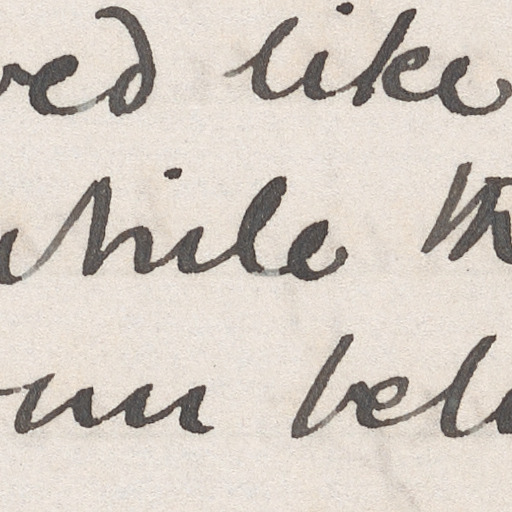 ved like
while th
un bel